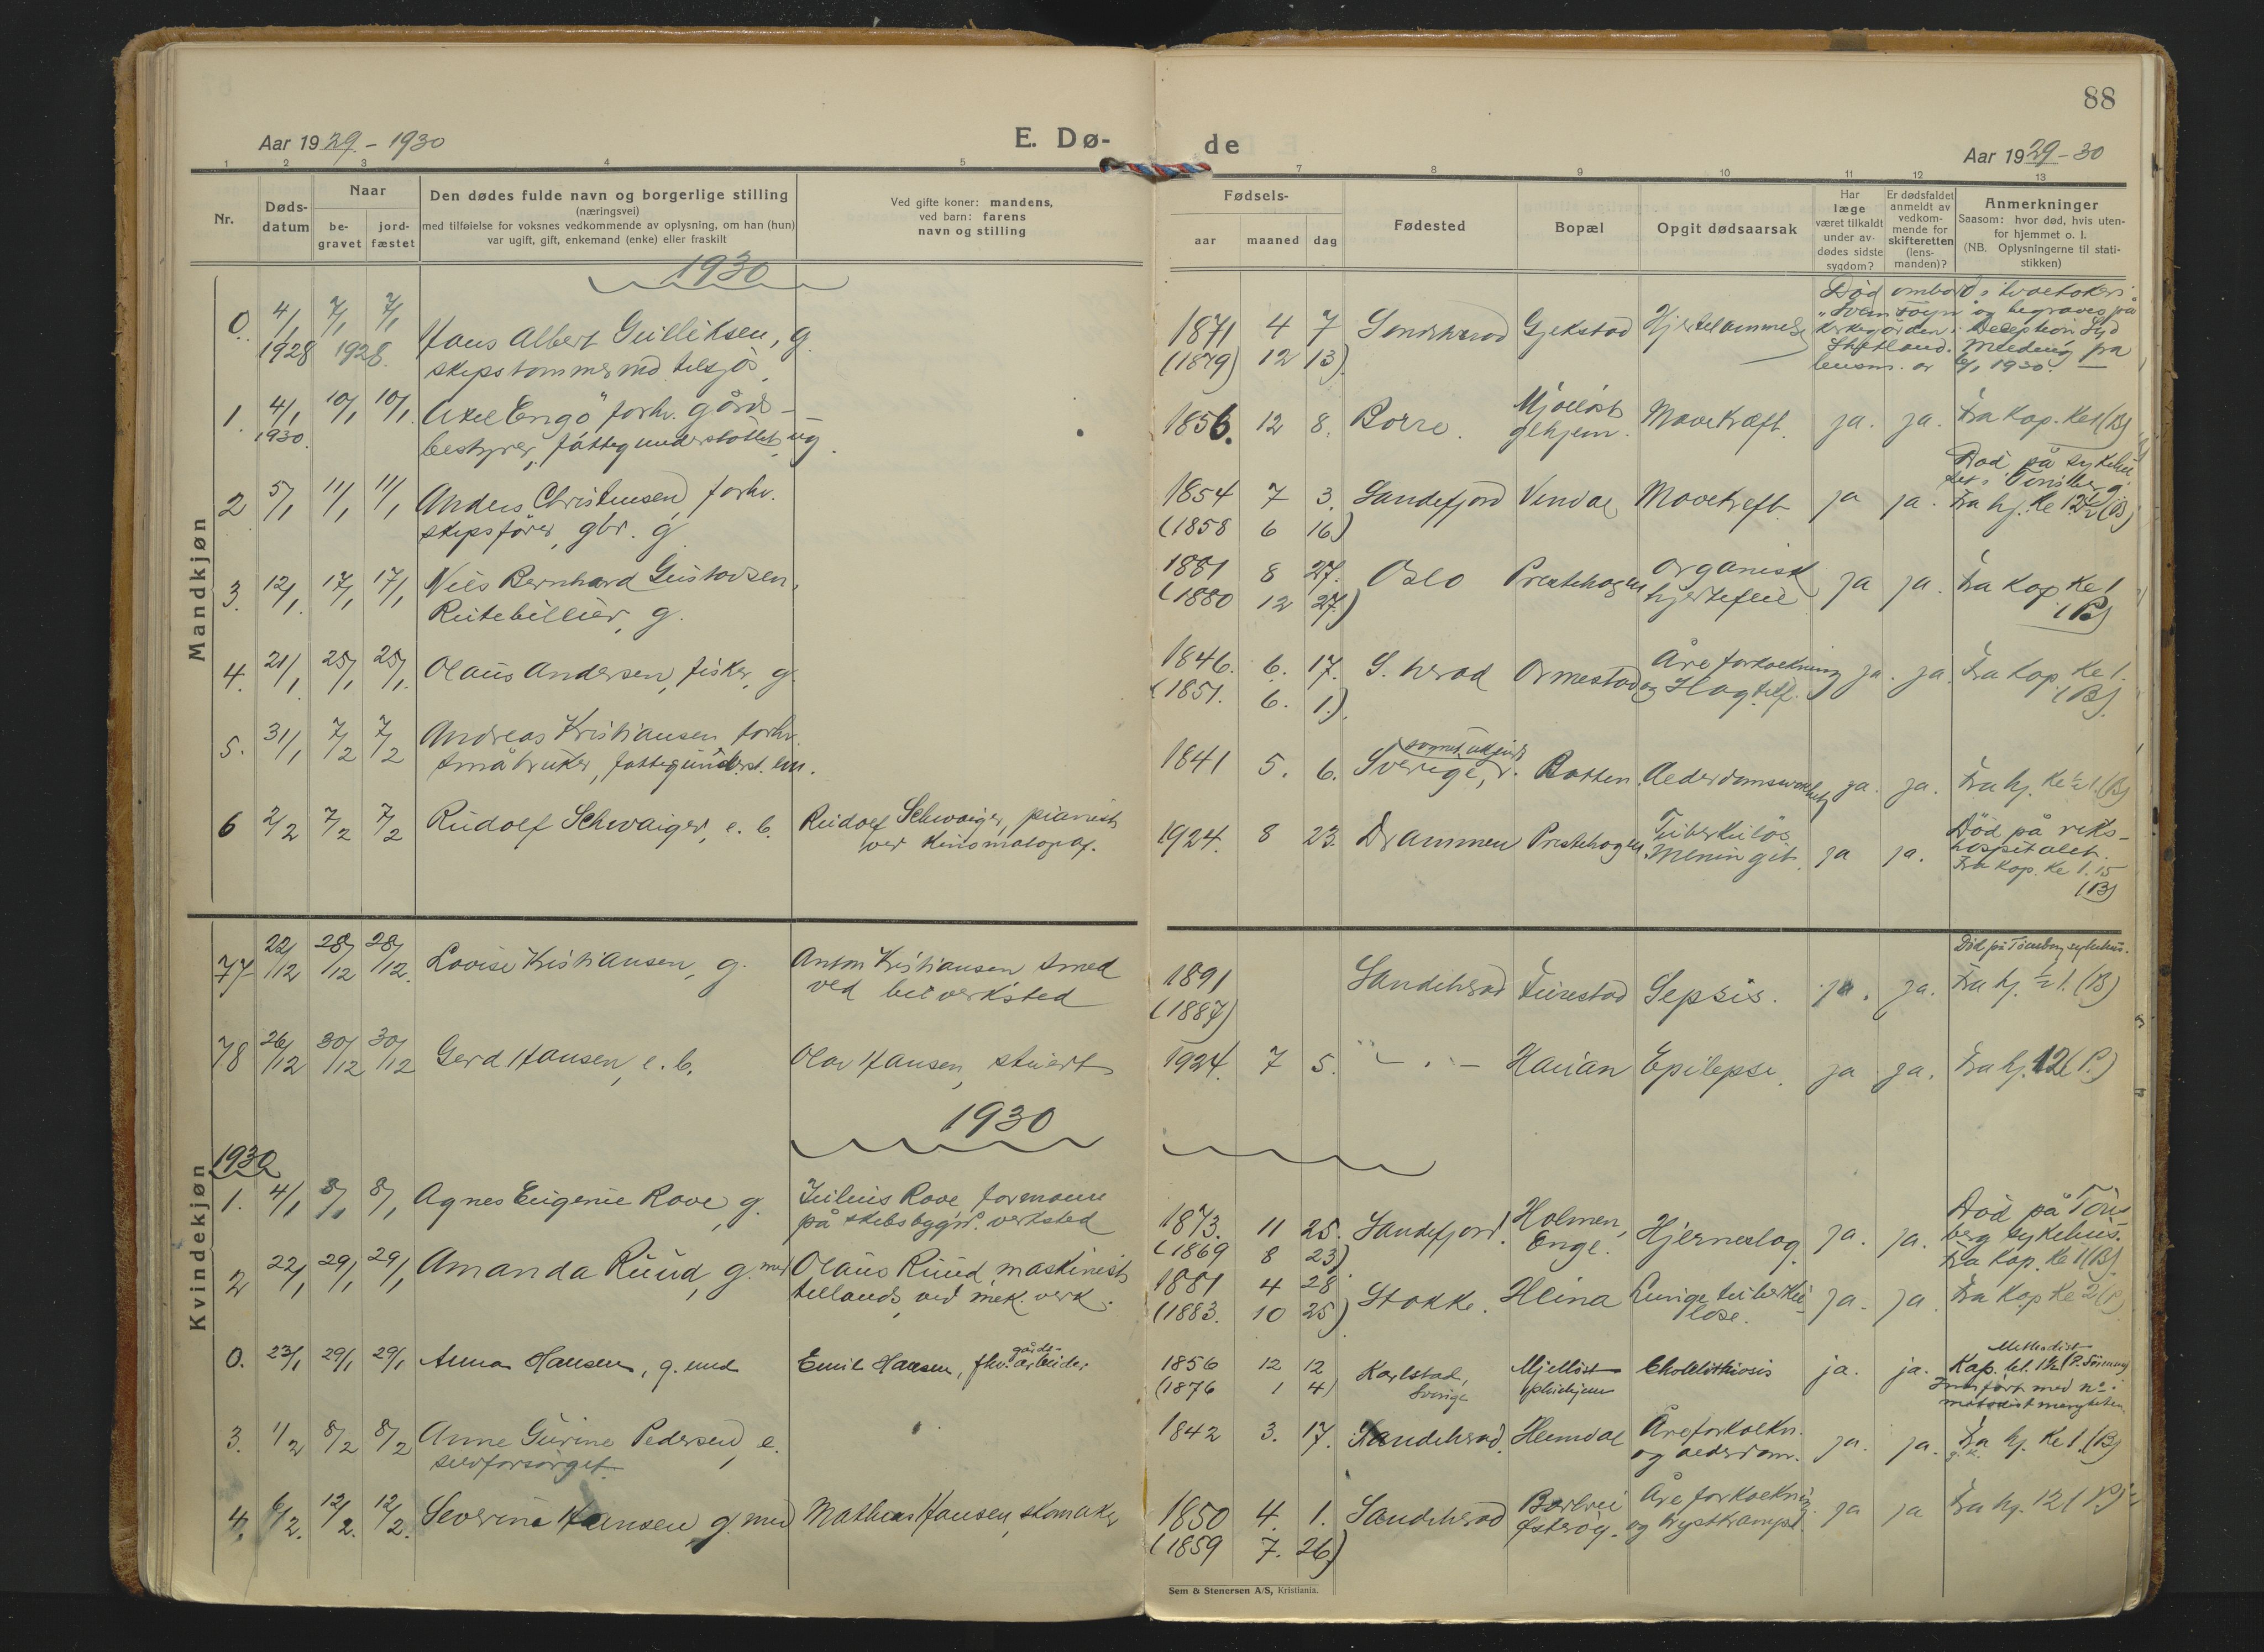 88
Aar 1929 - 1930
E. Dø-
de
Aar 1929 - 30
1 2 3 4 5
7 8 9 10 11 12 13
Nr.
Døds-
datum
Naar
be-
gravet
jord-
fæstet
Den dødes fulde navn og borgerlige stilling
(næringsvei)
med tilføielse for voksnes vedkommende av oplysning, om han (hun)
var ugift, gift, enkemand (enke) eller fraskilt
Ved gifte koner: mandens,
ved barn: farens
navn og stilling
Fødsels-
aar maaned dag
Fødested
Bopæl
Opgit dødsaarsak
Har
læge
været tilkaldt
under av-
dødes sidste
sygdom?
Er dødsfaldet
anmeldt av
vedkom-
mende for
skifteretten
(lens-
manden)?
Anmerkninger
Saasom: hvor død, hvis uten-
for hjemmet o. l.
(NB. Oplysningerne til stati-
stikken)
Mandkjøn
1930
0. 4/1 1928 7/1 1928 7/1 Hans Albert Gulliksen, g.
skipstømmermd tilsjøs
1871 4 7 Sandeherad Gjekstad Hjertelammelse
(1879) 12 13)
Død ombord i hvalkokeri
"Svend Foyn" og begraves på
kirkegården i Deception Syd
Shetland. Melding fra
lensm. av 6/1 1930.
1. 4/1 1930. 10/1 10/1. Axel Engø forh. gårds-
bestyrer, fattigunderstøttet, ug.
1856. 12 8. Borre. Mjølløst
glhjem. Mavekræft. ja. ja. Fra kap. Kl 1 (B)
2 5/1 11/1 11/1 Anders Christensen, forhv.
skipsfører, gbr. g.
1854 7 3. Sandefjord Vindal Mavekreft ja ja.
(1858 6 16)
Død på sykehu-
set i Tønsberg.
Fra hj. Kl 12 1/2 (B)
3. 12/1. 17/1 17/1 Nils Bernhard Gustavsen,
Rutebileier, g.
1881 8 27. Oslo Prestehagen organisk
hjertefeil ja ja. Fra Kap Kl 1
(B)
(1880 12 27.)
4. 21/1. 25/1 25/1. Olaus Andersen, fisker, g.
1846. 6. 17. S. herad Ormestad Åreforkalkning
og Slagtilf. ja. ja. Fra Kap. Kl 1.
(B).
(1851. 6. 1.)
5. 31/1 7/2 7/2 Andreas Kristiansen forhv.
småbruker, fattigunderst. em.
1841 5. 6. Sverige, sognet ukjendt. Botten. Alderdomssvakhet ja. ja. Fra hj. Kl 1/2 1. (B)
6 2/2 7/2 7/2 Rudolf Schwaiger, e. b. Rudolf Schwaiger, pianist
ved Kinomatograf.
1924. 8 23. Drammen Prestehagen. Tuberkuløs
Meningit. ja ja.
Død på riks-
hospitalet.
Fra Kap. Kl 1.15
(B)
Kvindekjøn
77 22/12 28/12 28/12. Lovise Kristiansen, g. Anton Kristiansen smed
ved bilverksted
1891 Sandeherad Furestad Sepsis. ja. ja.
(1887)
Død på Tønsberg sykehus.
Fra hj. 1/2 1. (B)
78 26/12 30/12 30/12 Gerd Hansen, e. b. Olav Hansen, stuert
1924. 7 5. - " - Hauan Epilepsi. ja ja. Fra hj. 12 (P.)
1930
1930
1. 4/1 8/1 8/1 Agnes Eugenie Rove, g. Julius Rove formann
på skibsbyggri. verksted
1873. 11 25. Sandefjord. Holmen,
Enge. Hjerneslag. ja. ja.
(1869 8 23)
Død på Tøns-
berg sykehus.
Fra Kap. Kl 1 (B).
2 22/1 29/1 29/1 Amanda Ruud, g. med Olaus Ruud, maskinist
tillands, ved mek. verk.
1881 4 28 Stokke. Heina Lungetuberku-
lose. ja. ja. Fra Kap Kl 2 (P)
(1883. 10 25)
0. 23/1 29/1 29/1 Anna Hansen, g. med Emil Hansen, fhv. gårds-
arbeider
1856 12 12 Karlstad,
Sverige Mjølløst
pleiehjem Cholelithiasis ja. ja.
(1876 1 4)
Methodist
Kap. kl. 1 1/2
Innført med no. i
metodistmenigheten
3. 1/2 8/2 8/2 Anne Gurine Pedersen, e.
selvforsørget
1842 3. 17. Sandeherad. Heimdal Åreforkalkn.
og alderdom. ja. ja. Fra hj. Kl 1. (B)
4. 6/2. 12/2. 12/2. Severine Hansen, g. med Mathias Hansen, skomaker
1850 4. 1. Sandeherad Basberg
Østerøy. Åreforkalkning
og brystkrampe. ja ja Fra hj. 12 (P)
(1859 7. 26)
Sem & Stenersen A/S, Kristiania.